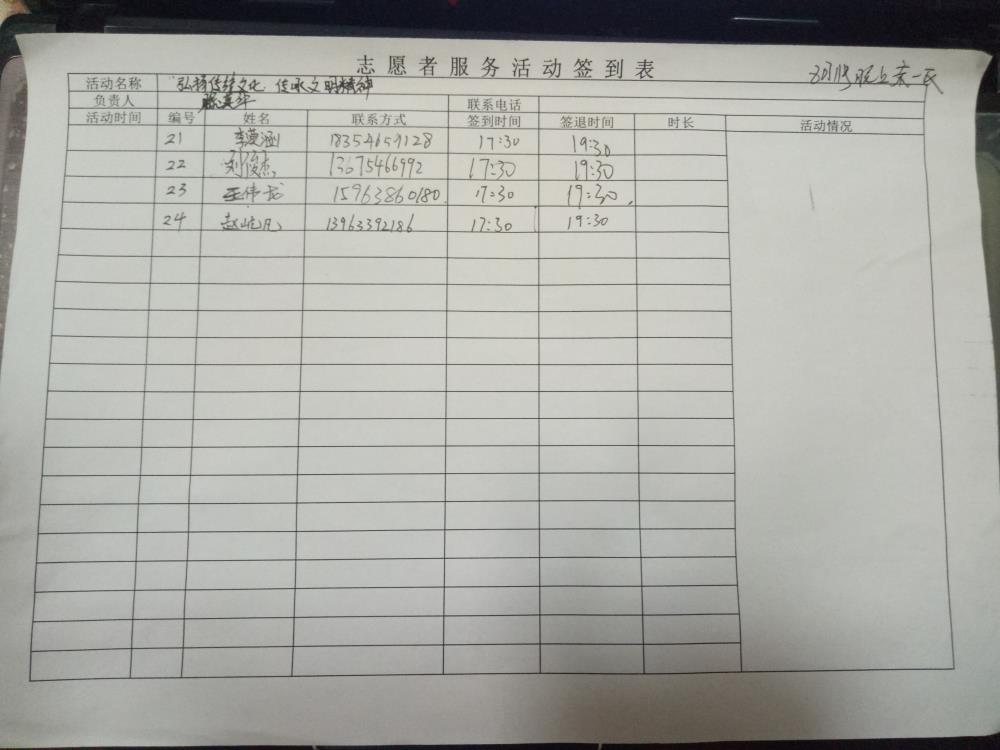 志愿者服务活动签到表
活动名称 "弘扬传统文化,传承文明精神
负责人 联系电话
活动时间 编号 姓名 联系方式 签到时间 签退时间 时长 活动情况
21 李蔓涵 17:30 19:30
22 刘俊杰 13675466992 17:30 19:30
23 王伟龙 15963860180 17:30 19:30
24 赵屹凡 13963392186 17:30 19:30